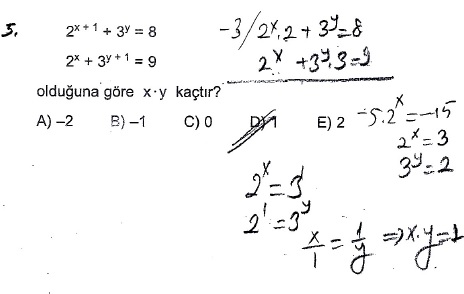 5.
2^(x + 1) + 3^y = 8
2^x + 3^(y + 1) = 9
olduğuna göre x·y kaçtır?
A) –2 B) –1 C) 0 D) 1 E) 2
-3/2^x.2 + 3^y=8
2^x +3^y.3=9
-5.2^x=-15
2^x=3
3^y=2
2^x=3^1
2^1=3^y
x/1 = 1/y ⇒ x.y=1